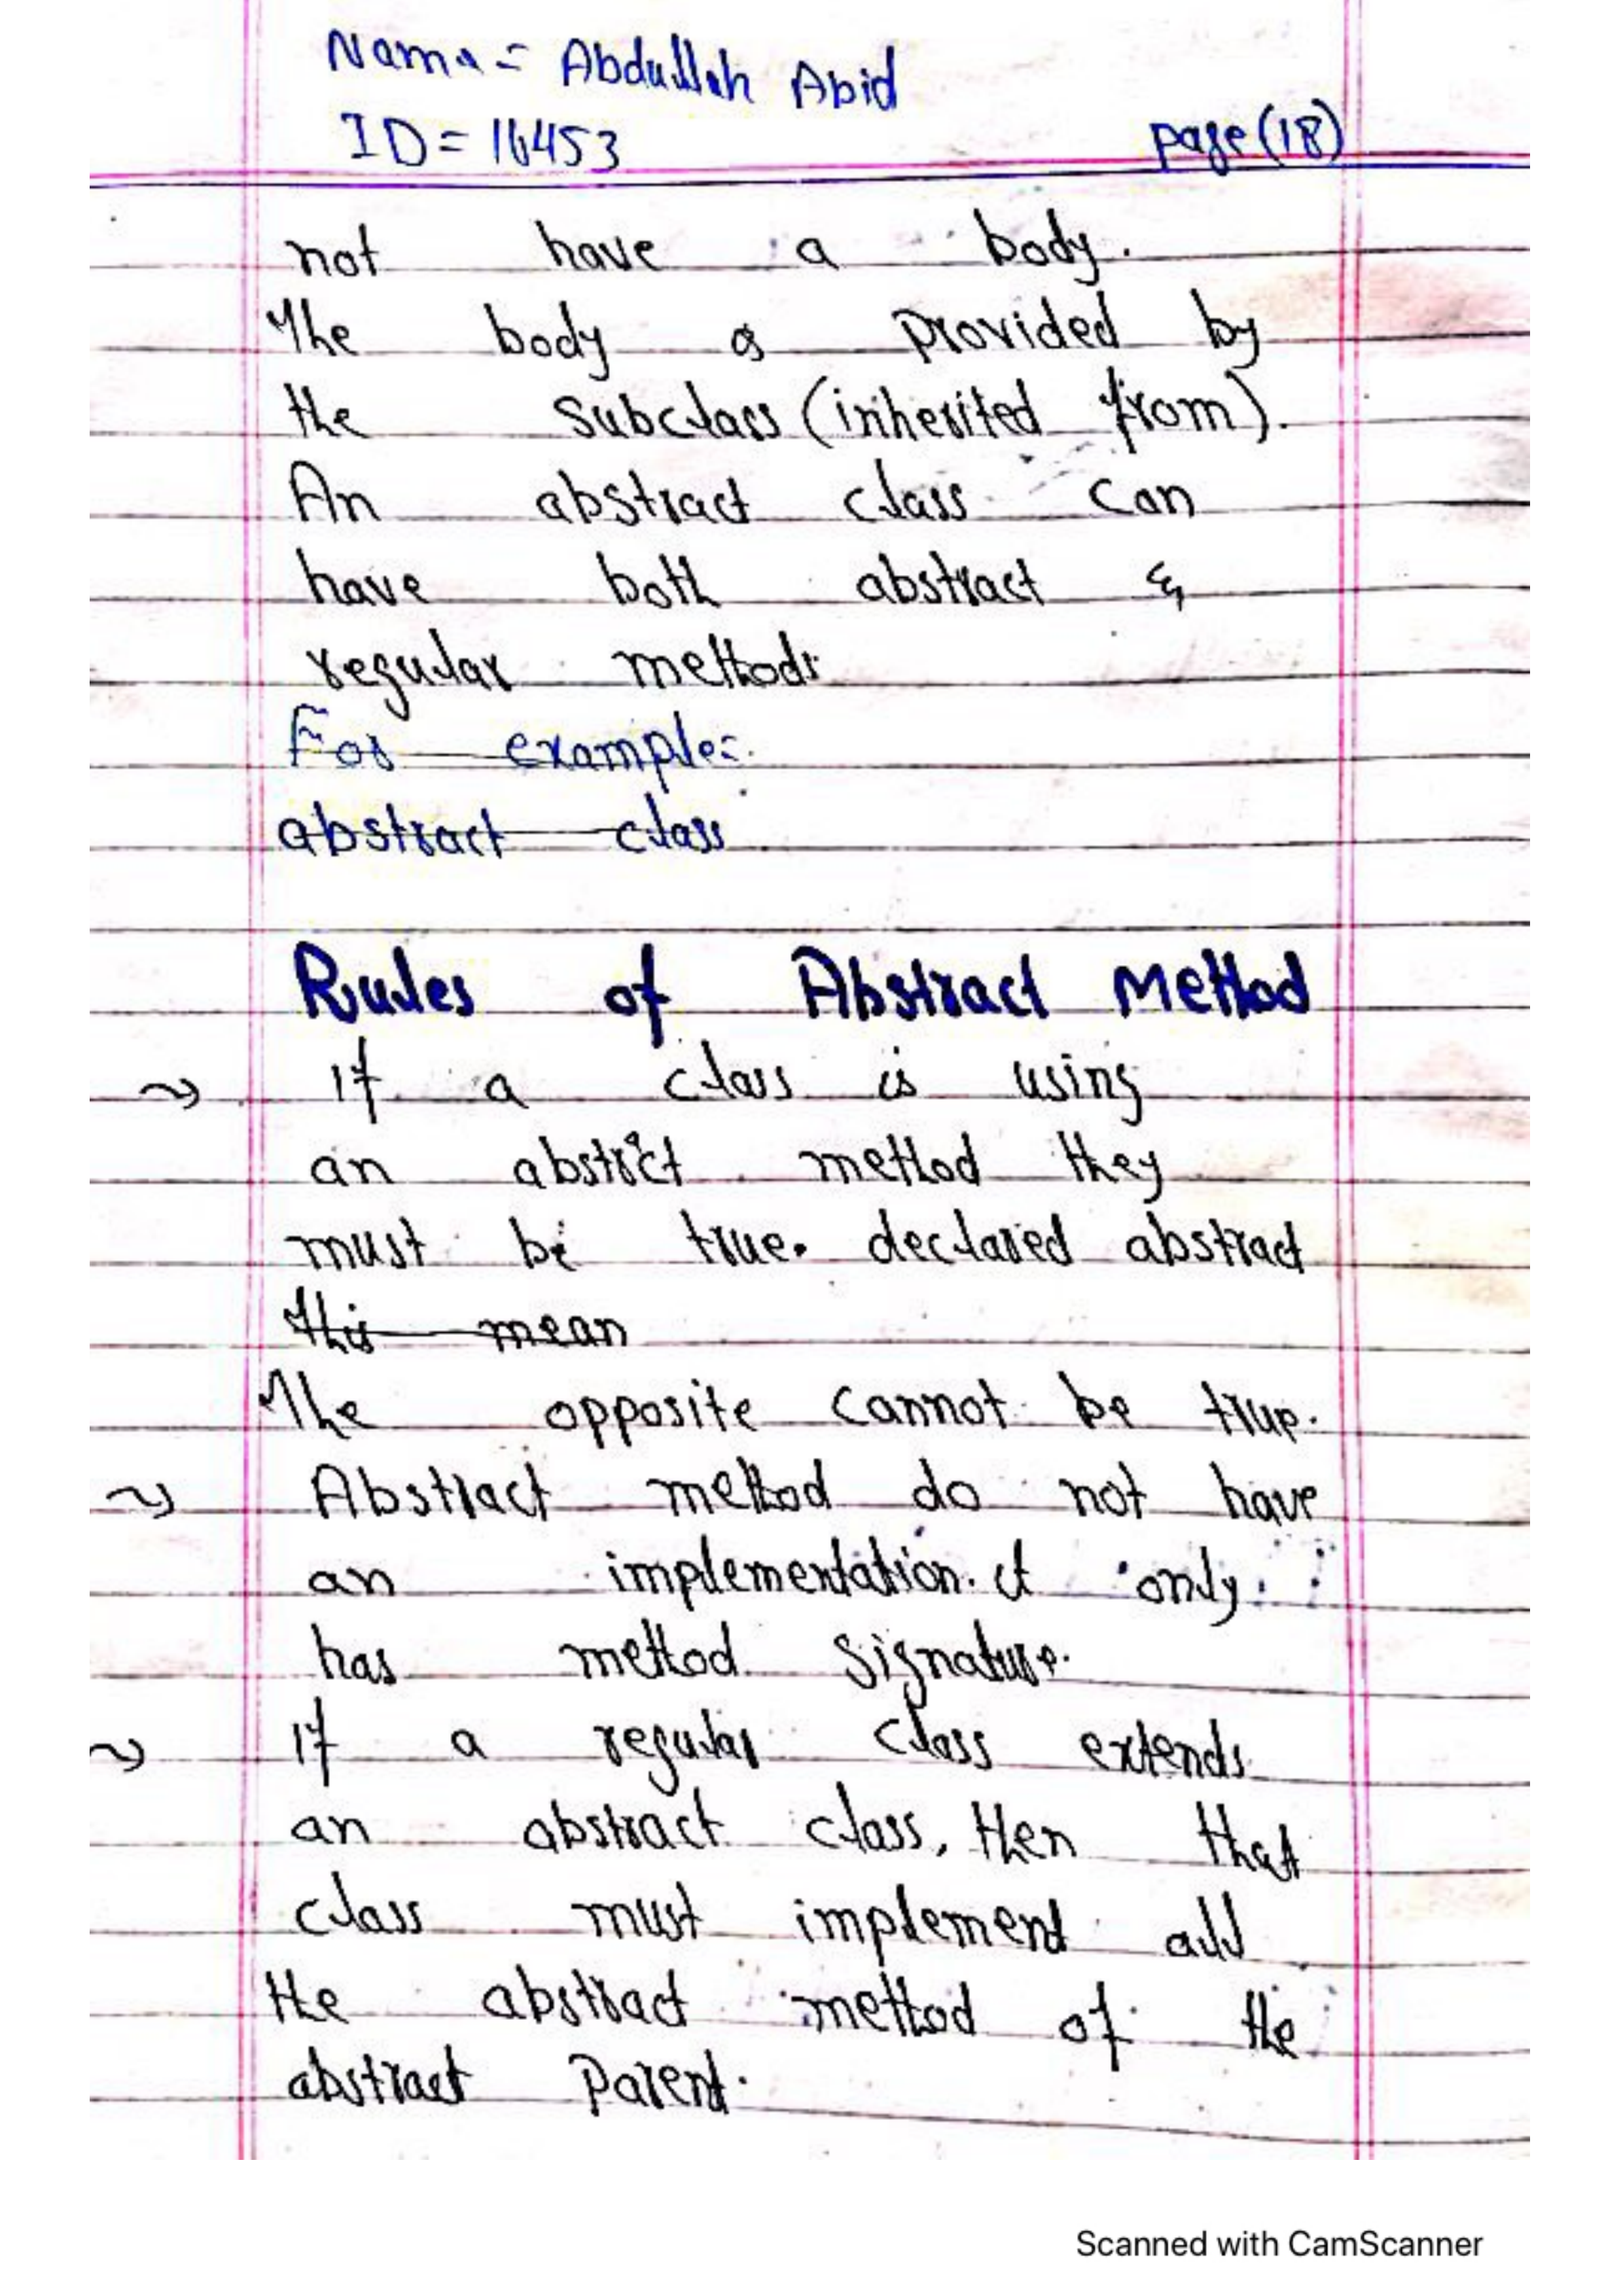 Name = Abdullah Abid
ID = 16453
page (18)
not have a body.
The body is provided by
the subclass (inherited from).
An abstract class can
have both abstract &
regular methods
For example:
abstract class
Rules of Abstract Method
~> If a class is using
an abstrct method they
must be true. declared abstract
This mean
The opposite cannot be true.
~> Abstract method do not have
an implementation. it only
has method signature.
~> If a regular class extends
an abstract class, then that
class must implement all
the abstract method of the
abstract parent.
Scanned with CamScanner